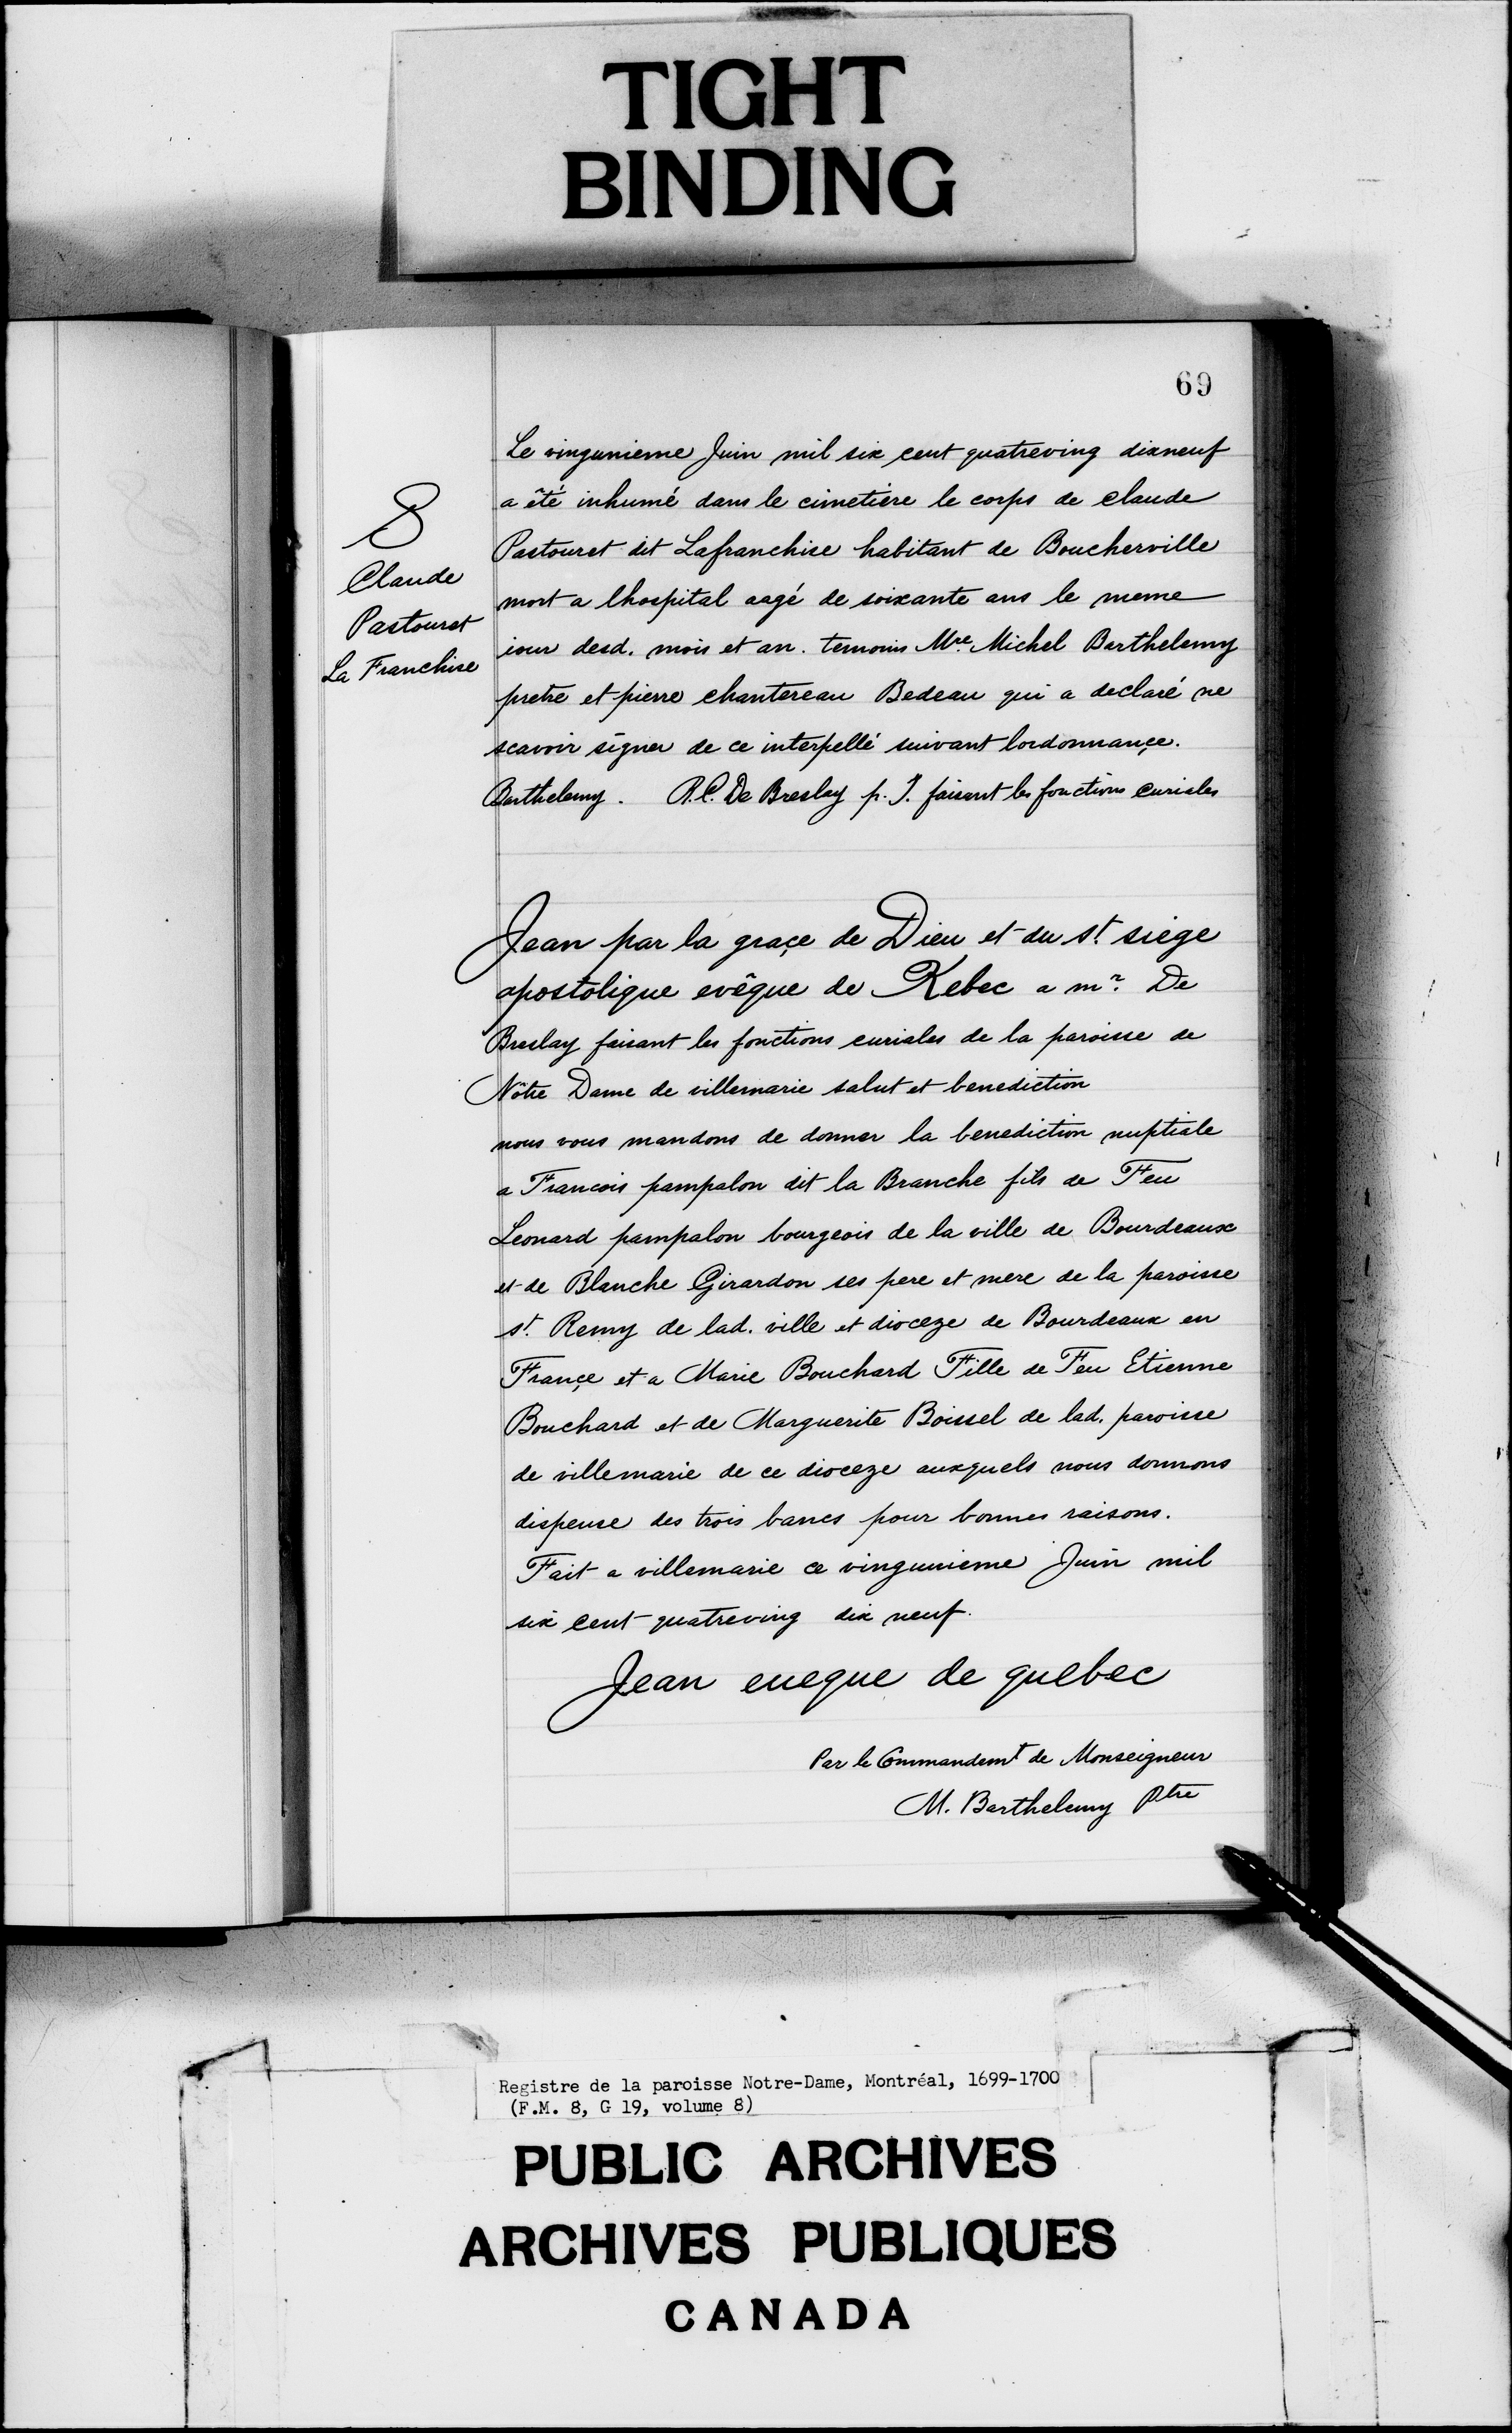 TIGHT
BINDING
69
Le vingunieme Juin mil six cent quatreving dixneuf
a êté inhumé dans le cimetiere le corps de claude
Pastouret dit Lafranchise habitant de Boucherville
mort a lhospital aagé de soixante ans le meme
iour desd. mois et an. temoins Mre Michel Barthelemy
pretre et pierre chantereau Bedeau qui a declaré ne
scavoir signer de ce interpellé suivant lordonnançe.
Barthelemy. R.C. De Breslay p. J. faisant les fonctions curiales
8
Claude
Pastouret
La Franchise
Jean par la graçe de Dieu et du st. siege
apostolique evêque de Kebec a mr. De
Breslay faisant les fonctions curiales de la paroisse de
Nôtre Dame de villemarie salut et benediction
nous vous mandons de donner la benediction nuptiale
a Francois pampalon dit la Branche fils de Feu
Leonard pampalon bourgeois de la ville de Bourdeaux
et de Blanche Girardon ses pere et mere de la paroisse
st. Remy de lad. ville et dioceze de Bourdeaux en
Françe et a Marie Bouchard Fille de Feu Etienne
Bouchard et de Marguerite Boissel de lad. paroisse
de villemarie de ce dioceze auxquels nous donnons
dispense des trois bancs pour bonnes raisons.
Fait a villemarie ce vingunieme Juin mil
six cent quatreving dix neuf.
Jean eueque de quebec
Par le Commandemt de Monseigneur
M. Barthelemy Ptre
Registre de la paroisse Notre-Dame, Montréal, 1699-1700
(F.M. 8, G 19, volume 8)
PUBLIC ARCHIVES
ARCHIVES PUBLIQUES
CANADA